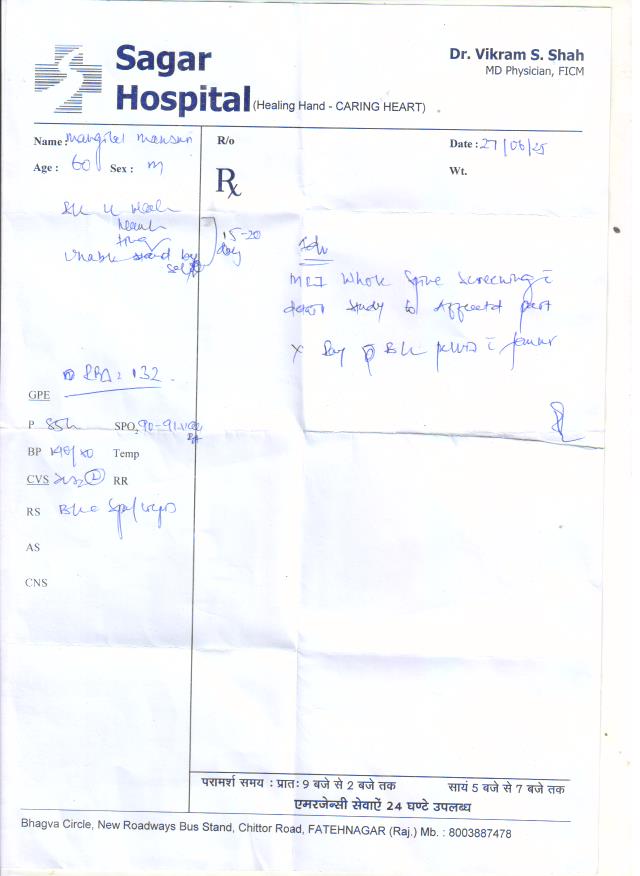 Sagar
Hospital (Healing Hand - CARING HEART)
Dr. Vikram S. Shah
MD Physician, FICM
Name : Mangilal Mansuri
Age : 60 Sex : M
R/o
Rx
Date : 27/06/25
Wt.
15-20
day
Unable stand by
self
Adv
MRI Whole Spine Screening c̄
detail study to Affected part
X Ray BL pelvis c̄ femur
RBS : 132
GPE
P 85 SPO₂ 90-91
BP 140/80 Temp
CVS RR
RS
AS
CNS
परामर्श समय : प्रातः 9 बजे से 2 बजे तक सायं 5 बजे से 7 बजे तक
एमरजेन्सी सेवाऐं 24 घण्टे उपलब्ध
Bhagva Circle, New Roadways Bus Stand, Chittor Road, FATEHNAGAR (Raj.) Mb. : 8003887478